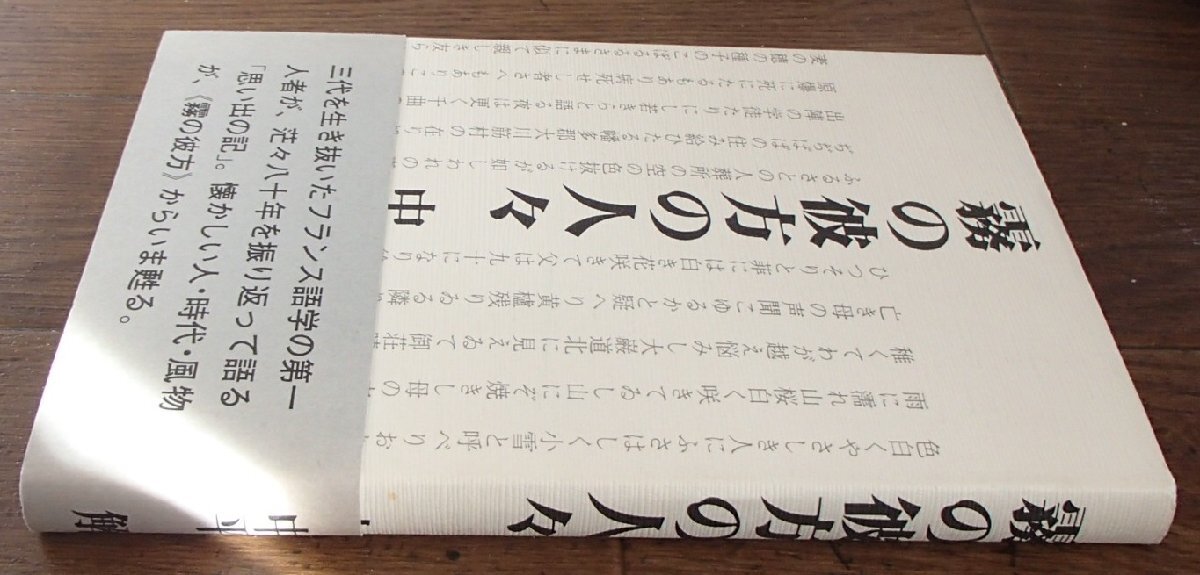 霧の彼方の人々 中平 解
色白くやさしき人にふさはしく小雪と呼べりお
雨に濡れ山桜白く咲きてゐし山にぞ焼きし母の
稚くてわが越え悩みし大巌道北に見えゐて御荘
亡き母の声聞こゆるかと疑へり黄櫨残りゐる隣
ひっそりと には白き花咲きて父は九十になり
霧の彼方の人々 中
ふるさとの人 所の空の色 如しわれの
ちちははの住み給ひたる幡多郡大川筋村の在り
出陣の学徒たりにし若きらと語る夜は更く千曲
原爆に死にたるもあり病死せし者さへもありこ
麦の穂の種子のこぼるるさまに似て親しき友ら
三代を生き抜いたフランス語学の第一
人者が、茫々八十年を振り返って語る
「思い出の記」。懐かしい人・時代・風物
が、《霧の彼方》からいま甦る。